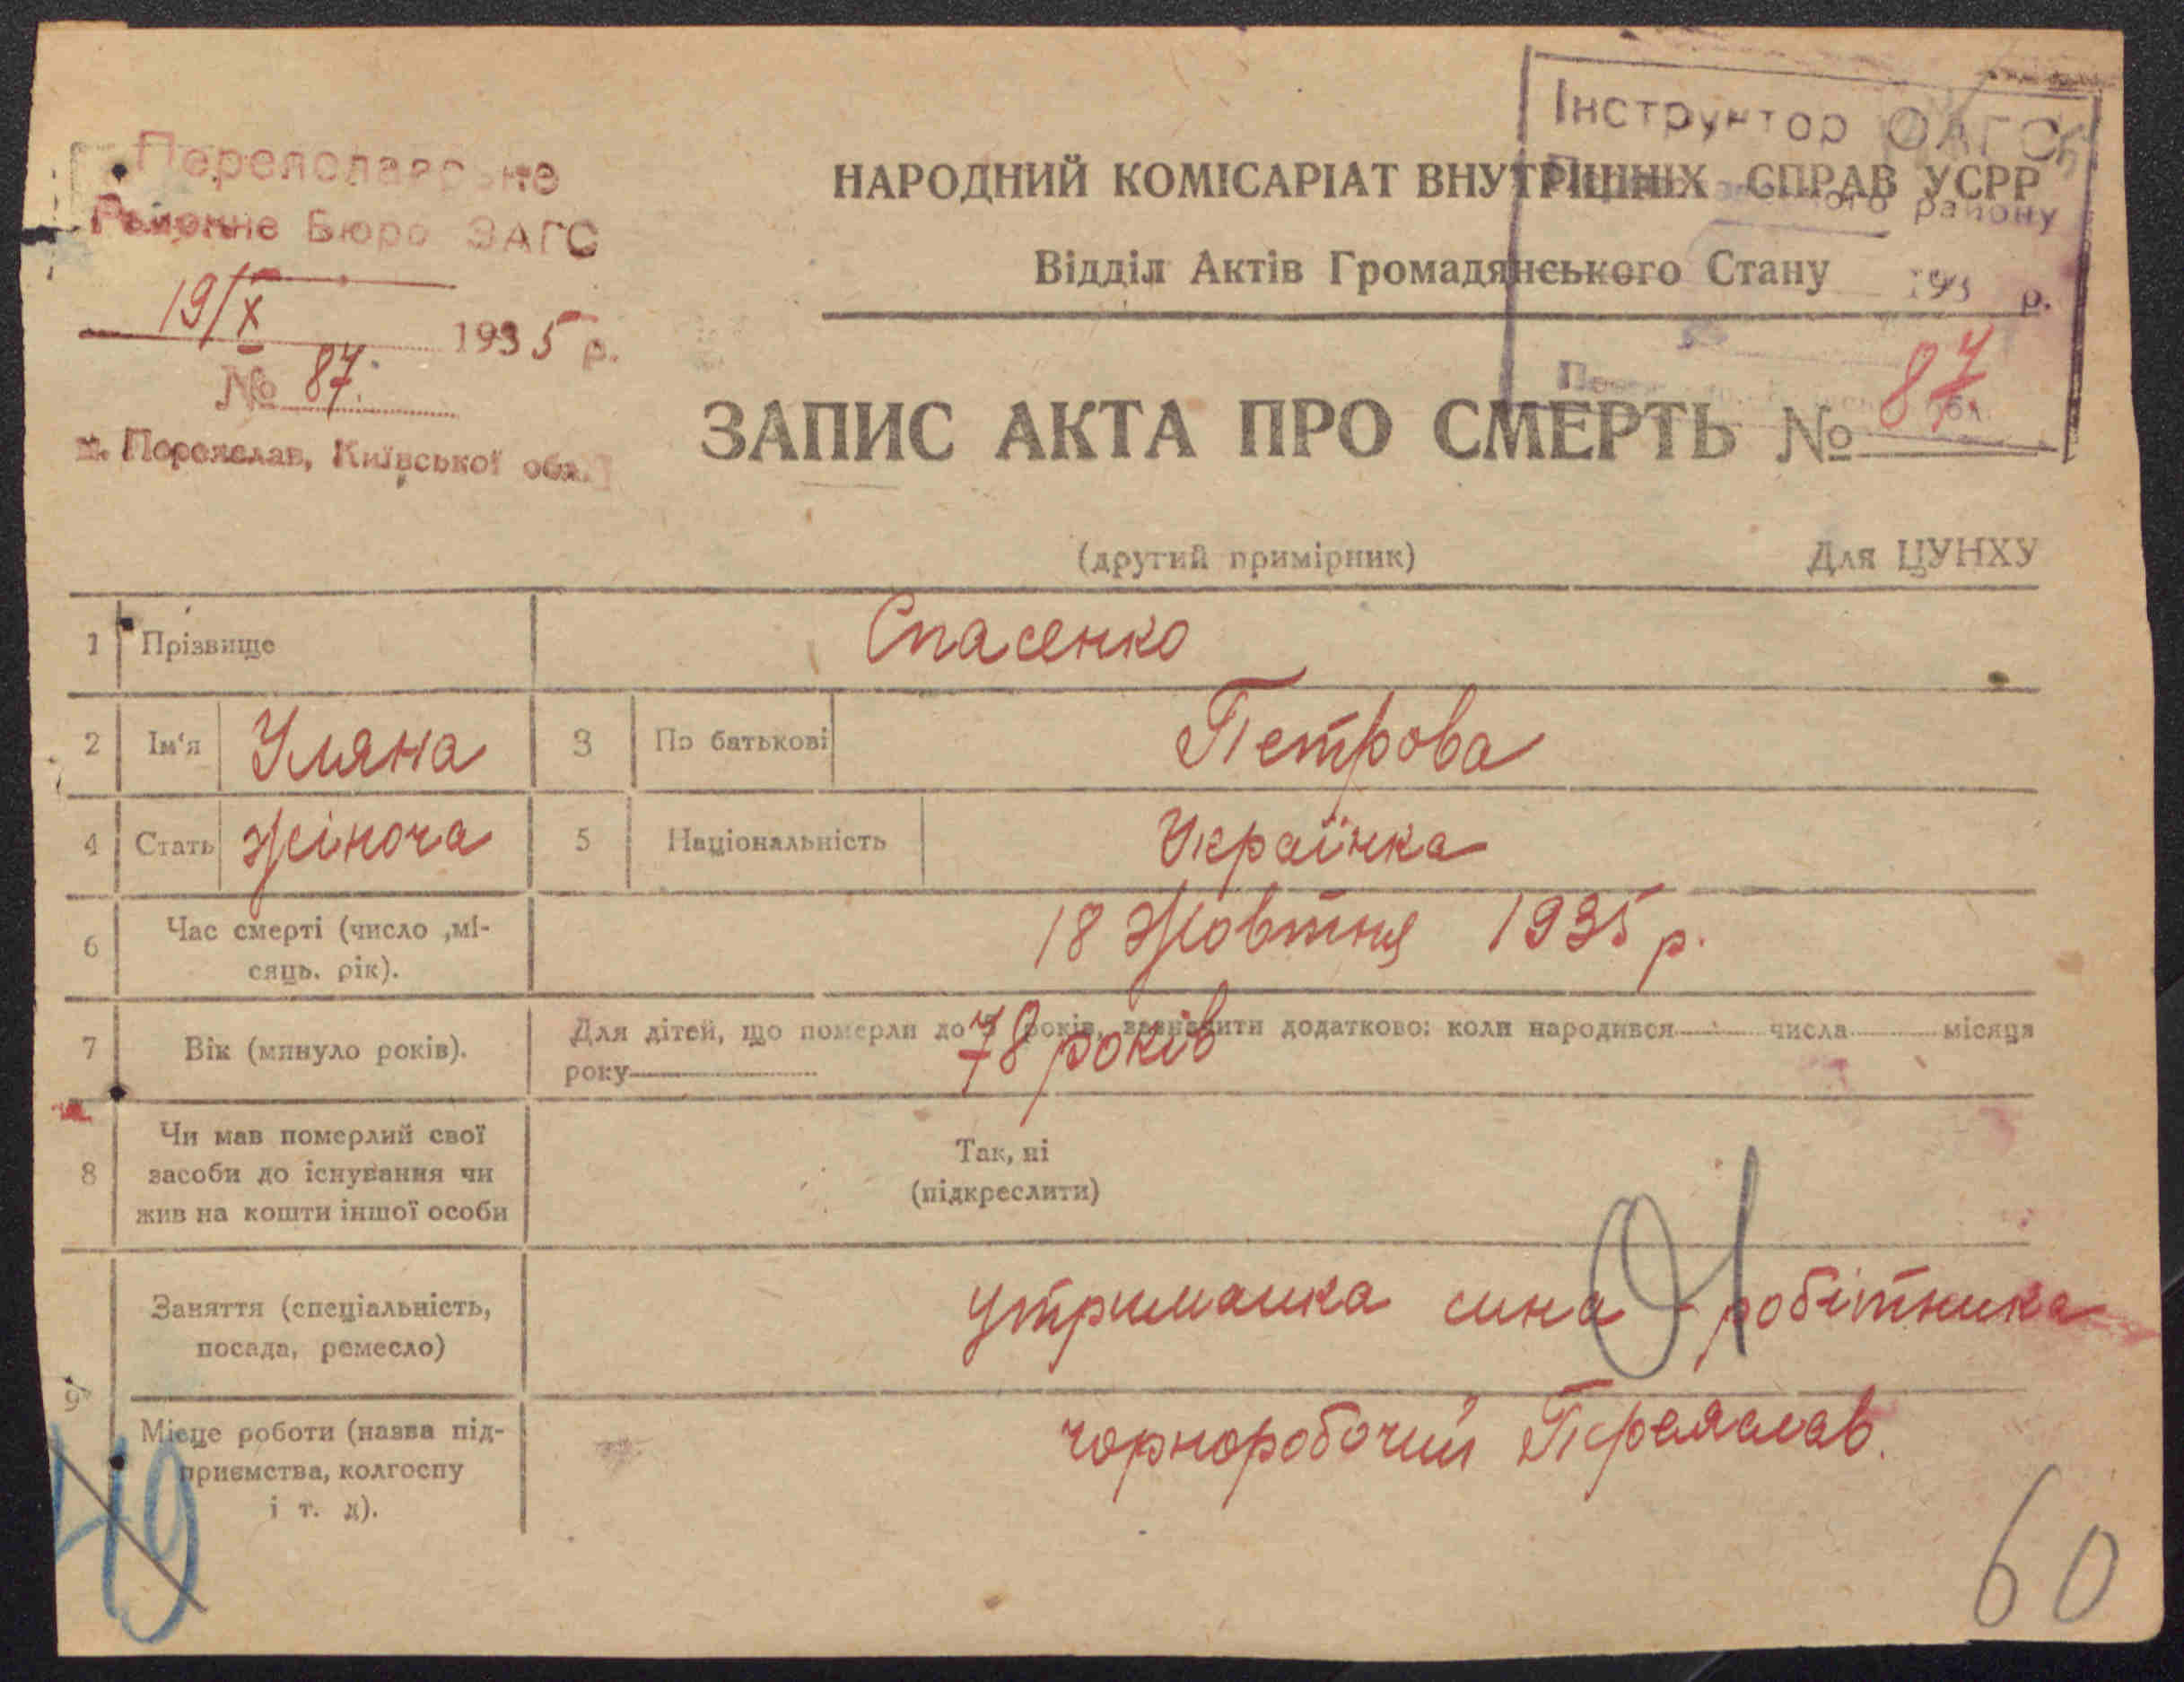 Переяславське
Районне Бюро ЗАГС
19/X 1935 р.
№ 87.
м. Переяслав, Київської обл.
Інструктор ОАГС
району
193 р.
обл.
НАРОДНИЙ КОМІСАРІАТ ВНУТРІШНІХ СПРАВ УСРР
Відділ Актів Громадянського Стану
ЗАПИС АКТА ПРО СМЕРТЬ № 87
(другий примірник) Для ЦУНХУ
1 Прізвище Спасенко
2 Ім'я Уляна 3 По батькові Петрова
4 Стать Жіноча 5 Національність Українка
6 Час смерті (число ,мі-
сяць. рік). 18 Жовтня 1935 р.
7 Вік (минуло років). Для дітей, що померли до років, зазначити додатково: коли народився числа місяця
року 78 років
8 Чи мав померлий свої
засоби до існування чи
жив на кошти іншої особи
Так, ні
(підкреслити)
9 Заняття (спеціальність,
посада, ремесло)
утриманка сина робітника
Місце роботи (назва під-
приємства, колгоспу
і т. д).
чорноробочий Переяслав.
01
49
60